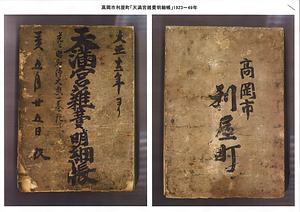 高岡市利屋町「天満宮雑費明細帳」1923－49年
大正十二年ヨリ
天満宮雑費明細帳
亥五月廿五日改
高岡市
利屋町